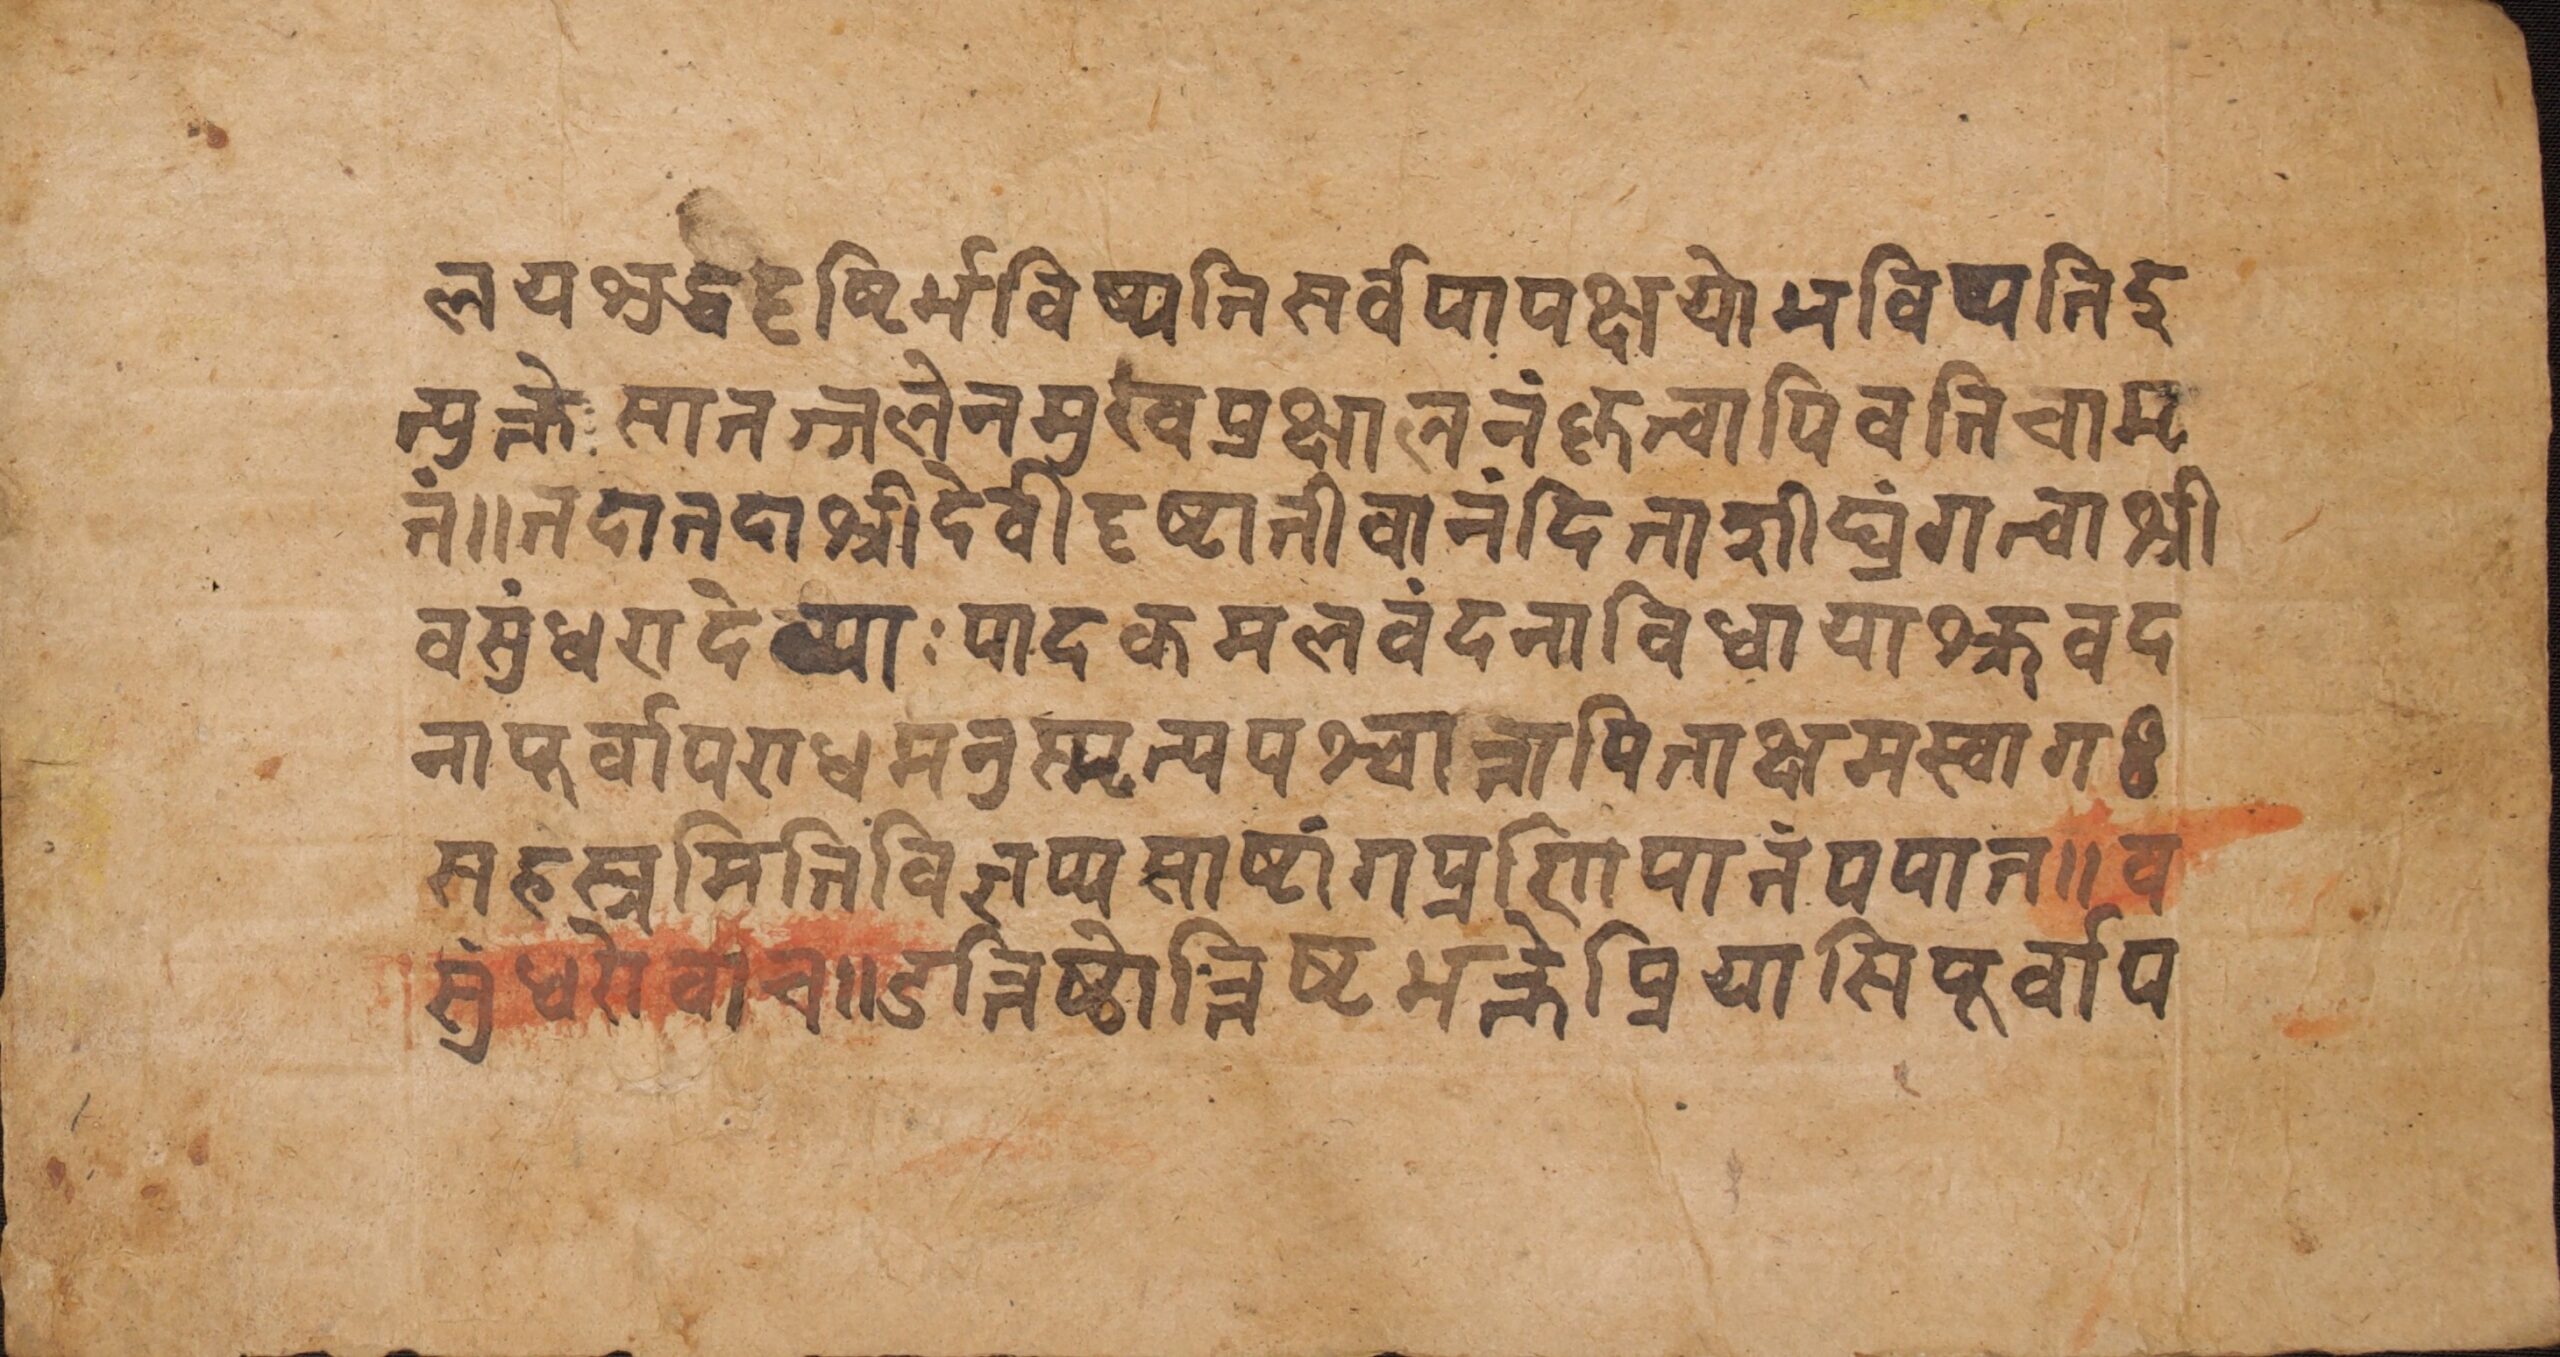 लयश्रद्धदृष्टिर्भविष्यतिसर्वपापक्षयोभविष्यतिइ
त्युक्तेःसातज्जलेनमुखप्रक्षालनंकृत्वापिवतिचाम
तं॥तदातदाश्रीदेवीदृष्टातीवानंदिताशीघ्रंगत्वाश्री
वसुंधरादेव्याःपादकमलवंदनाविधायाश्रुवद
नापूर्वापराधमनुस्मृत्यपश्चात्तापिताक्षमस्वाग
सहस्रमितिविज्ञप्यसाष्टांगप्रणिपातंपपात॥व
सुंधरोवाच॥उत्तिष्ठोत्तिष्टभक्तेप्रियासिपूर्वाप